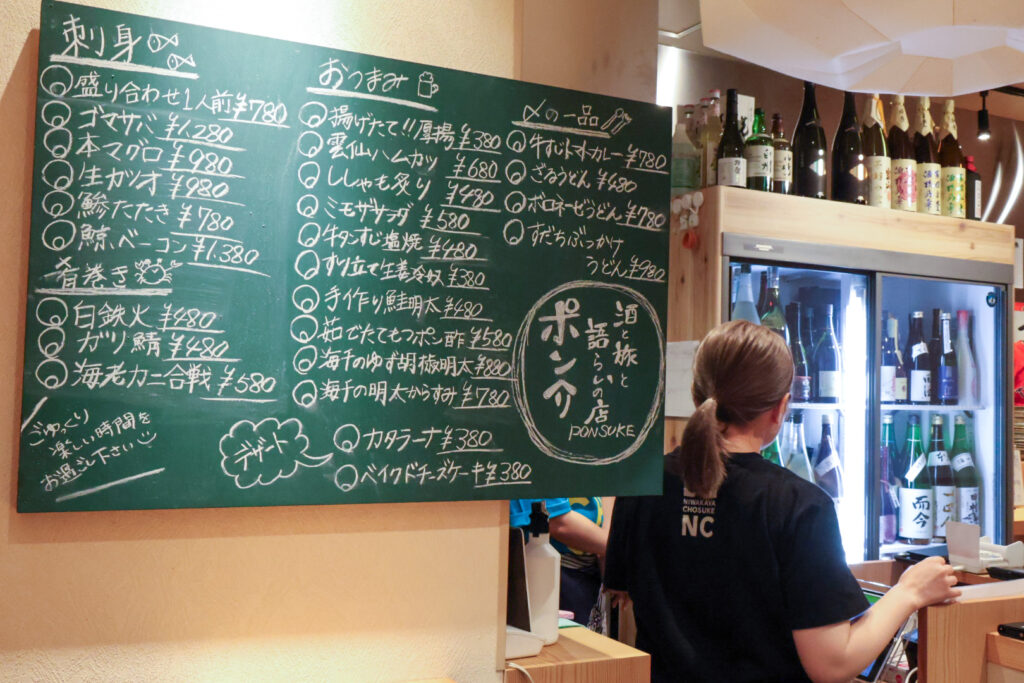 刺身
盛り合わせ1人前 ¥780
ゴマサバ ¥1,280
本マグロ ¥980
生ガツオ ¥980
鯵たたき ¥780
鯖ベーコン ¥1,380
肴巻き
白鉄火 ¥480
ガリ鯖 ¥480
海老カニ合戦 ¥580
ごゆっくり
楽しい時間を
お過ごし下さい
おつまみ
揚げたて!!厚揚 ¥380
雲仙ハムカツ ¥680
ししゃも炙り ¥480
ミモザサラダ ¥580
牛タンすじ塩焼 ¥480
すり立て生姜冷奴 ¥380
手作り鮭明太 ¥480
茹でたてもつポン酢 ¥580
海千のゆず胡椒明太 ¥880
海千の明太からすみ ¥780
デザート
カタラーナ ¥380
ベイクドチーズケーキ ¥380
〆の一品
牛すじトマトカレー ¥780
ざるうどん ¥480
ボロネーゼうどん ¥780
すだちぶっかけ
うどん ¥980
酒と旅と
語らいの店
ポン介
PONSUKE
NIWAKAYA
CHOSUKE
NC
而今